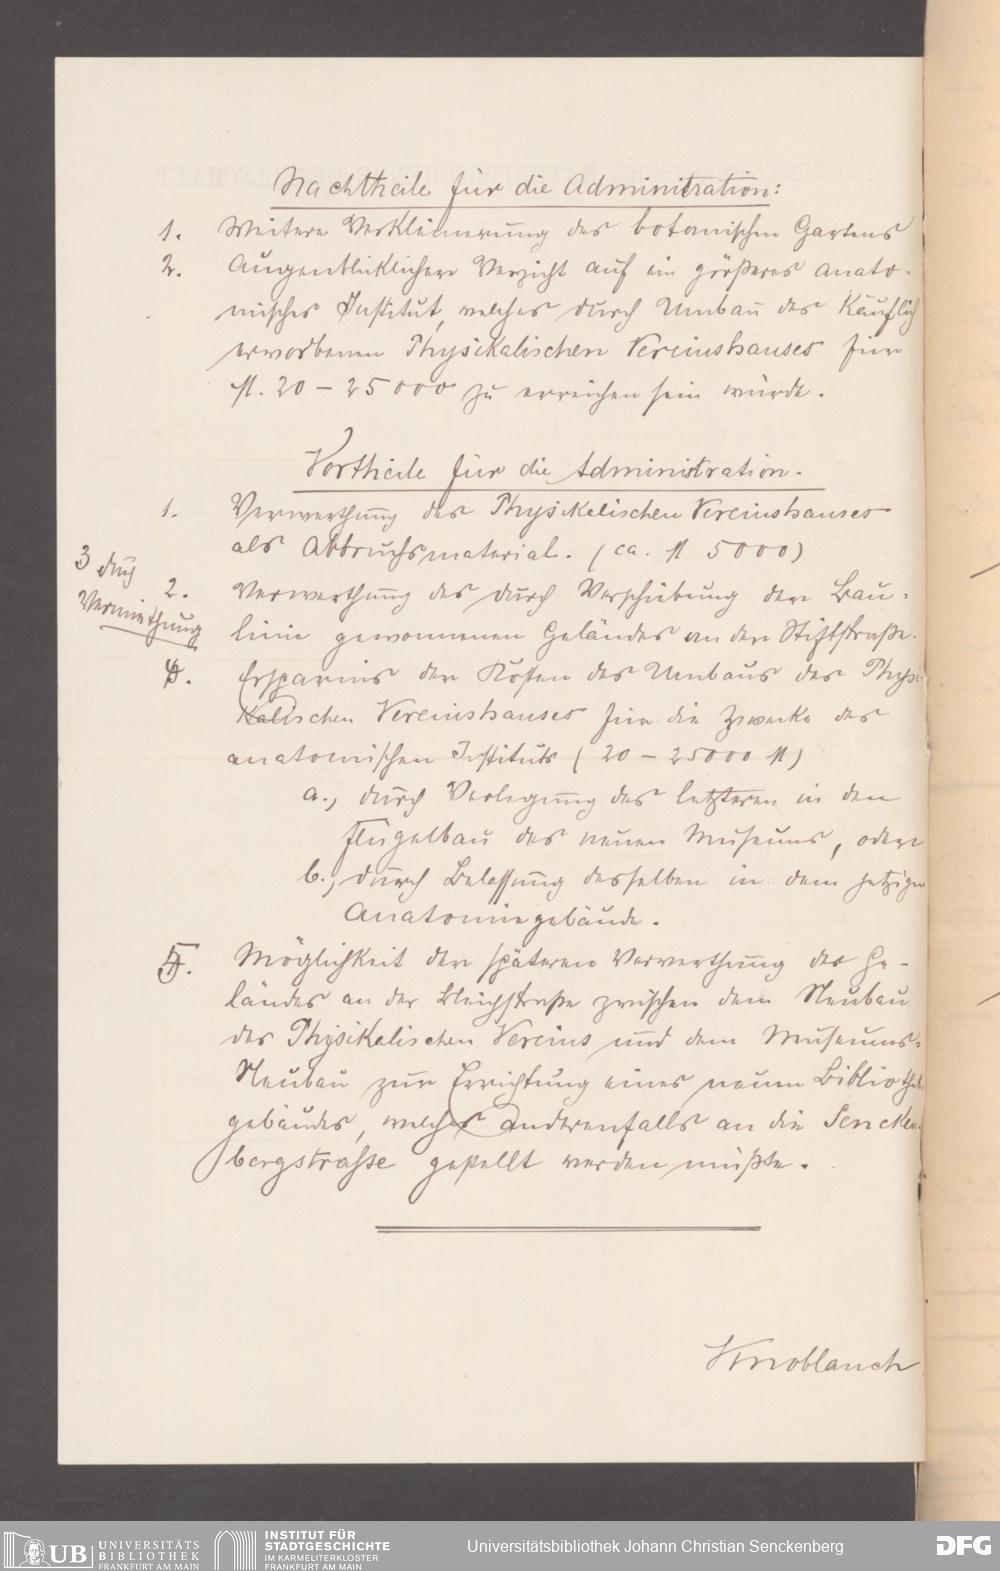 Nachtheile für die Administration:
1. Weitere Verkleinerung des botanischen Gartens
2. Augenblicklicher Verzicht auf ein größeres anato-
misches Institut, welches durch Umbau des käuflich
erworbenen Physikalischen Vereinshauses für
M. 20 – 25000 zu erreichen sein würde.
Vortheile für die Administration.
1. Verwerthung des Physikalischen Vereinshauses
als Abbruchsmaterial. (ca. M 5000)
3 durch
Vermiethung
2. Verwerthung des durch Verschiebung der Bau-
linie gewonnenen Geländes an der Stiftstraße.
4. Ersparnis der Kosten des Umbaus des Physi-
kalischen Vereinshauses für die Zwecke des
anatomischen Instituts (20 – 25000 M)
a., durch Verlegung des letzteren in den
Flügelbau des neuen Museums, oder
b., durch Belassung desselben in dem jetzigen
Anatomiegebäude.
5. Möglichkeit der späteren Verwerthung des Ge-
ländes an der Bleichstraße zwischen dem Neubau
des Physikalischen Vereins und dem Museums-
Neubau zur Errichtung eines neuen Bibliothek-
gebäudes, welches anderenfalls an die Sencken-
bergstrasse gestellt werden müßte.
Knoblauch
UB UNIVERSITÄTS
BIBLIOTHEK
FRANKFURT AM MAIN
INSTITUT FÜR
STADTGESCHICHTE
IM KARMELITERKLOSTER
FRANKFURT AM MAIN
Universitätsbibliothek Johann Christian Senckenberg
DFG